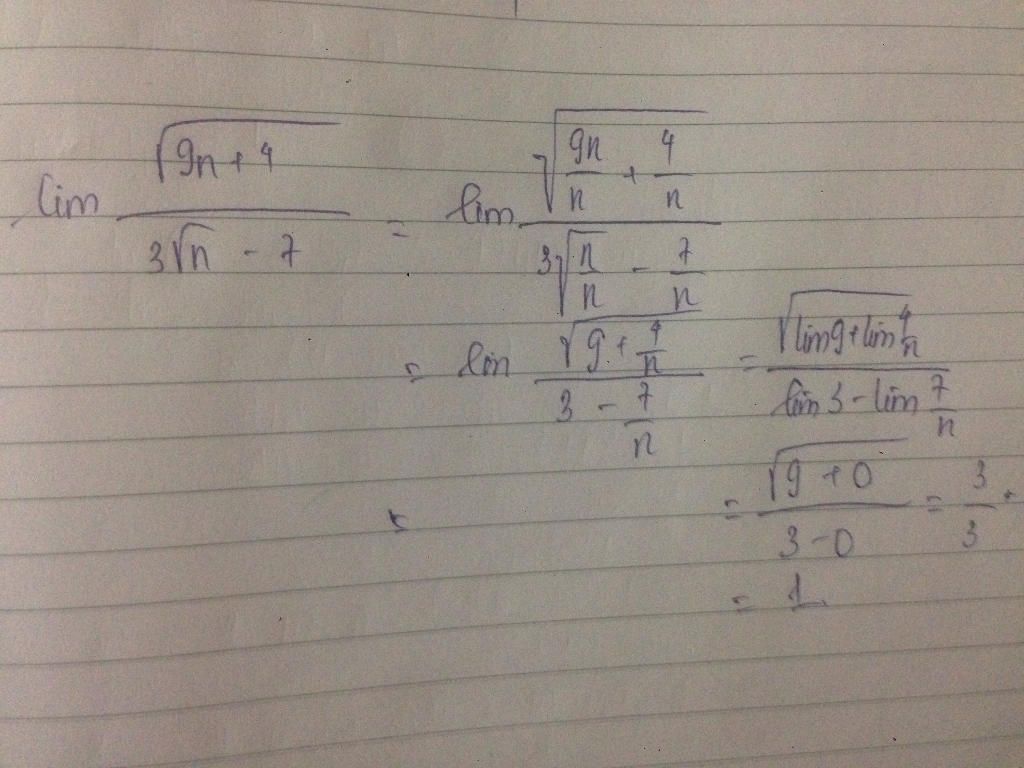 lim √(9n + 4) / (3√n - 7) = lim √(9n/n + 4/n) / (3√(n/n) - 7/n)
= lin √(9 + 4/n) / (3 - 7/n) = √(lim 9 + lim 4/n) / (lim 3 - lim 7/n)
= √(9 + 0) / (3 - 0) = 3/3 .
= 1